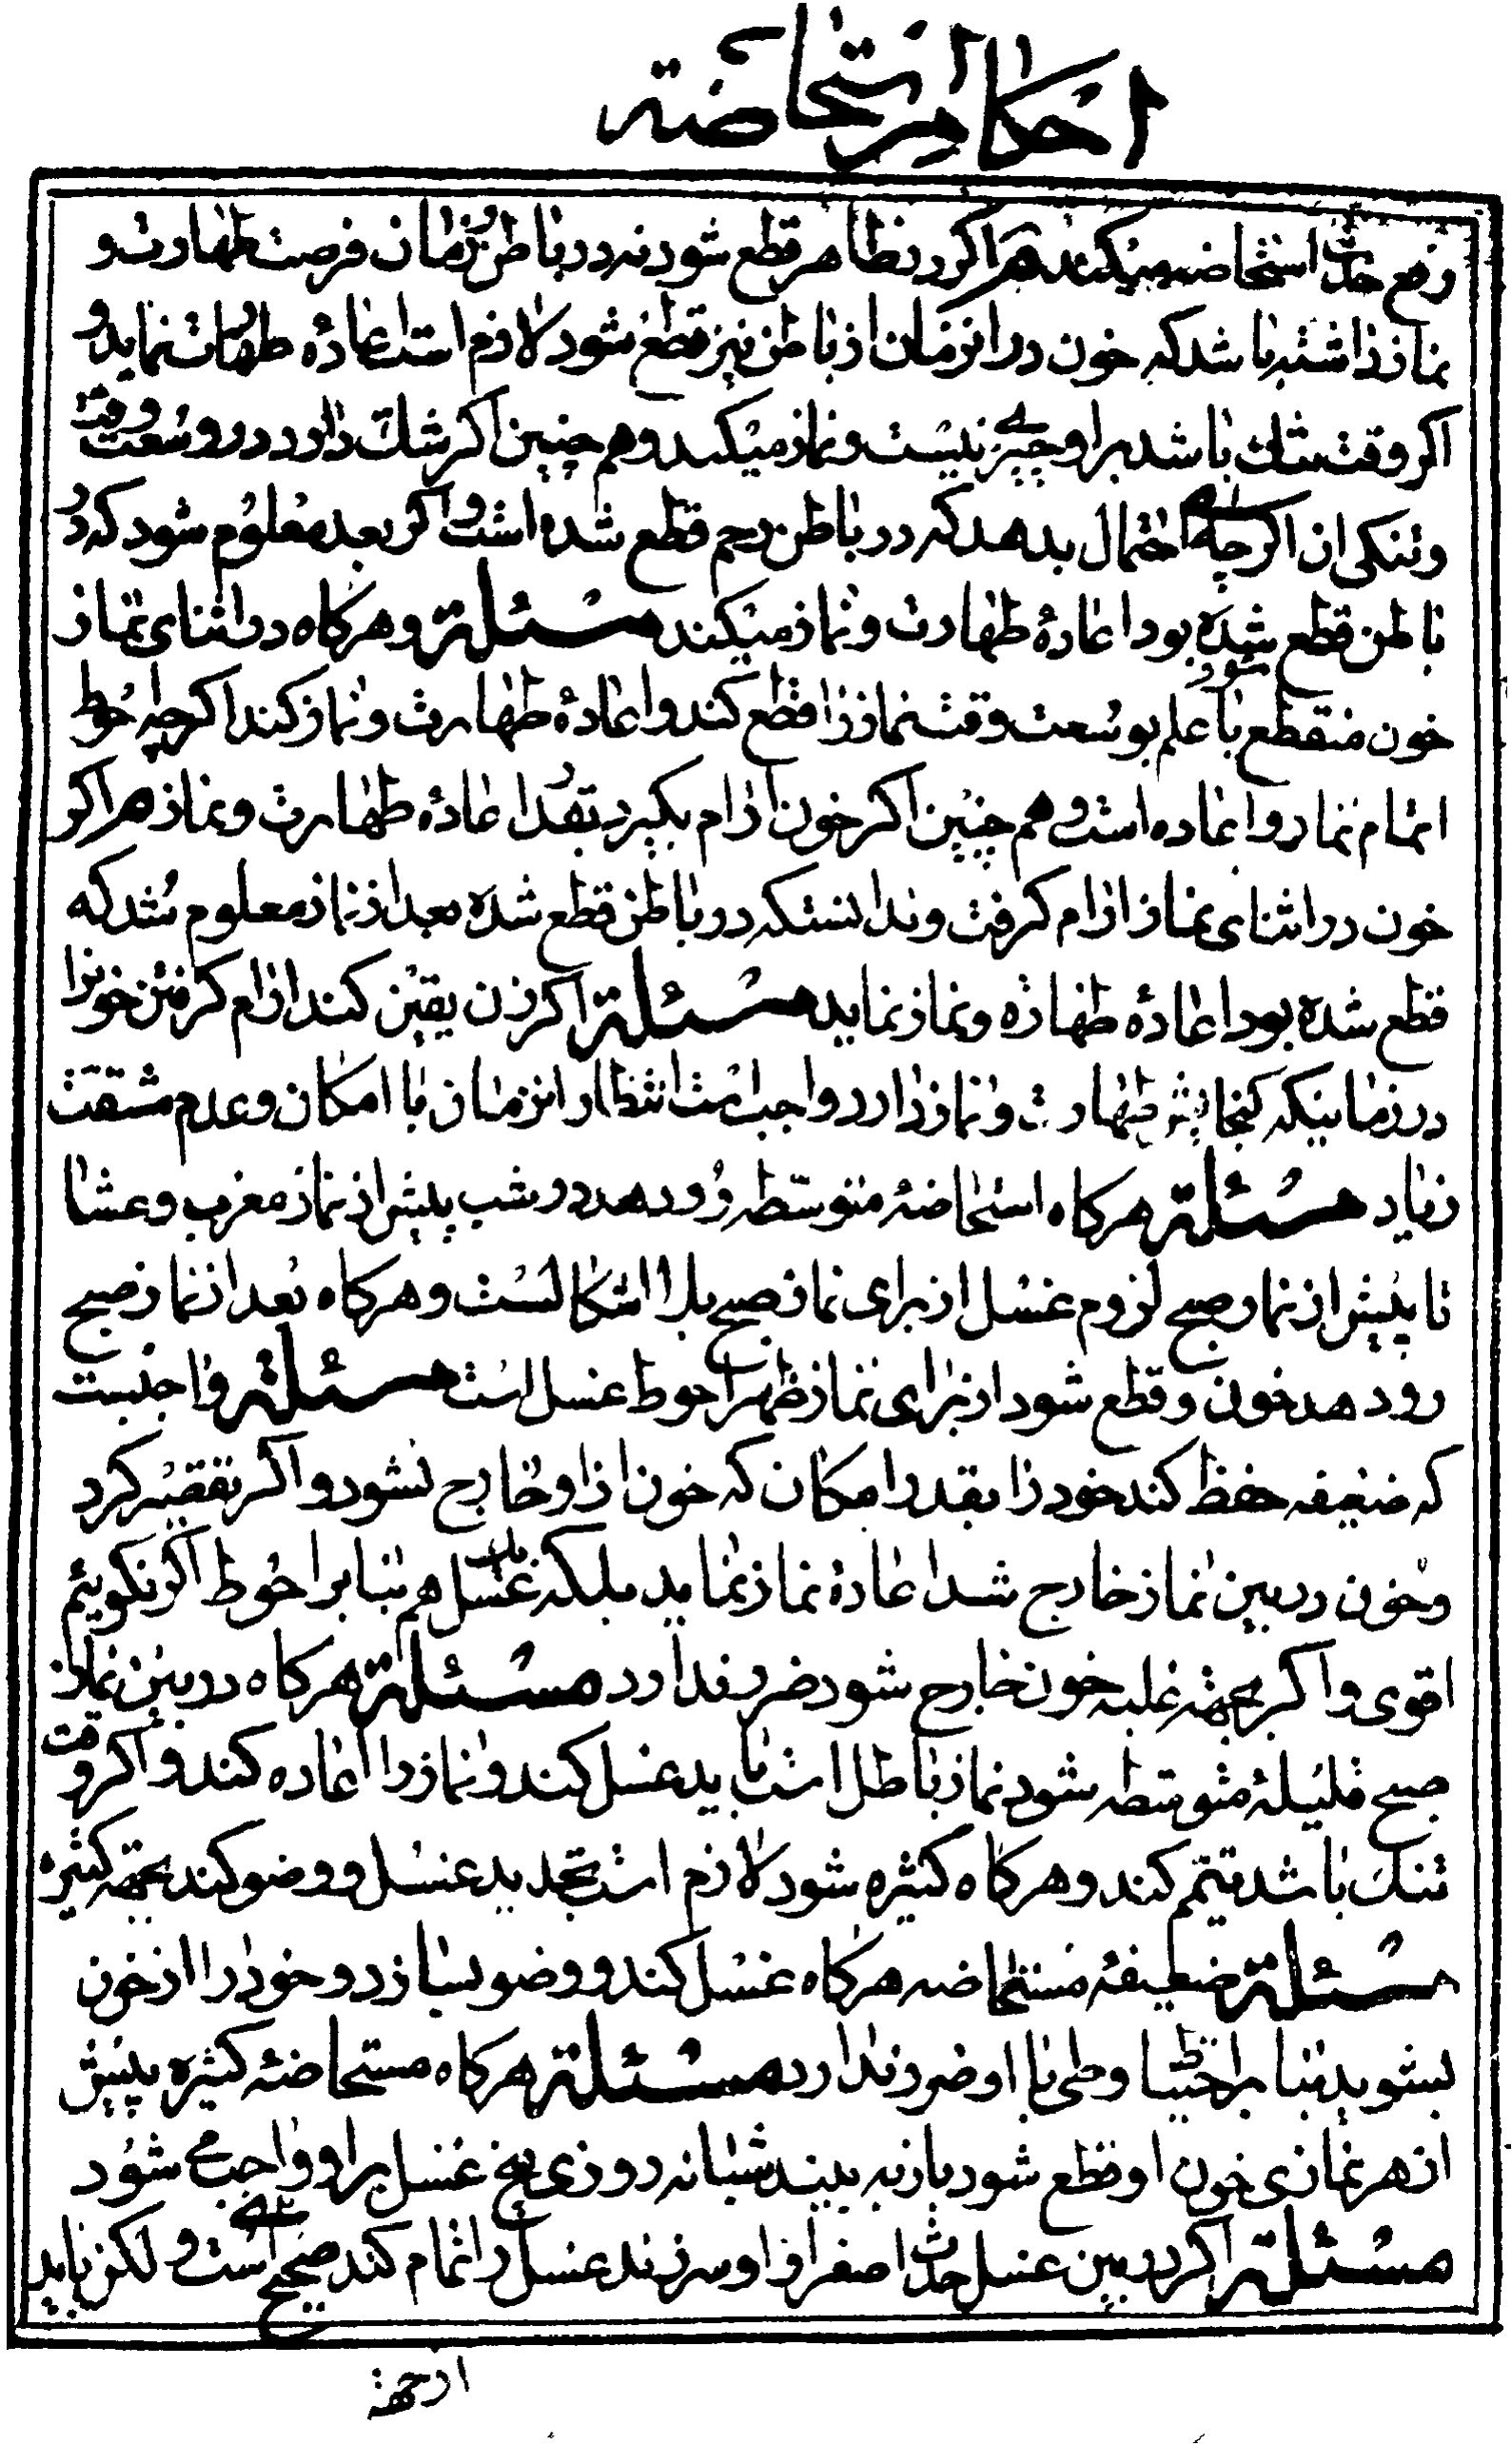 احکام استحاضه
رفع حدث استحاضه میکند هر اگر در ظاهر قطع شود نه در باطن زمان فرصت طهارت و
نماز داشته باشد که خون در انزمان از باطن نیز قطع شود لازم است اعادهٔ طهارت نماید و
اگر وقت شک باشد بر او چیزے نیست و نماز میکند و هم چنین اگر شک دارد در وسعت وقت
و تنکی ان اگر چه احتمال بدهد که در باطن رحم قطع شده است و اکر بعد معلوم شود که در
باطن قطع شده بود اعادهٔ طهارت و نماز میکند مسئلة و هرکاه در اثنای نماز
خون منقطع شود با علم بوسعت وقت نماز را قطع کند و اعادهٔ طهارت و نماز کند اکر چه احوط
اتمام نماز و اعاده است و هم چنین اکر خون ارام بکیرد بقدر اعادهٔ طهارت و نماز هر اکر
خون در اثنای نماز ارام کرفت و ندانستکه در باطن قطع شده بعد از نماز معلوم شد که
قطع شده بود اعادهٔ طهارة و نماز نماید مسئلة اکر زن یقین کند ارام کرفتن خونرا
در زمانیکه کنجایش طهارت و نماز دارد واجب است انتظار انزمان با امکان و عدم مشقت
زیاد مسئلة هرکاه استحاضهٔ متوسطه رو دهد در شب پیش از نماز مغرب و عشا
تا پیش از نماز صبح لزوم غسل از برای نماز صبح بلا اشکالست و هرکاه بعد از نماز صبح
رو دهد خون و قطع شود از برای نماز ظهر احوط غسل است مسئلة واجبست
که ضعیفه حفظ کند خود را بقدر امکان که خون از او خارج نشود و اکر تقصیر کرد
و خون در بین نماز خارج شد اعادهٔ نماز نماید بلکه غسل هم بنا بر احوط اکر نکوییم
اقوی و اکر بجهة غلبه خون خارج شود ضرر ندارد مسئلة هرکاه در بین نماز
صبح قلیلهٔ متوسطه شود نماز باطل است باید غسل کند و نماز را اعاده کند و اکر وقت
تنک باشد تیمم کند و هرکاه کثیره شود لازم است تجدید غسل و وضو کند بجهة کثیره
مسئلة ضعیفهٔ مستحاضه هرکاه غسل کند و وضو بسازد و خود را از خون
بشوید بنا بر احتیاط وطی با او ضرر ندارد مسئلة هرکاه مستحاضهٔ کثیره پیش
از هر نمازی خون او قطع شود باز به بیند شبانه روزی پنج غسل بر او واجب مے شود
مسئلة اکر در بین غسل حدث اصغر از او سر زند غسل را تمام کند صحیح است و لکن باید
از جهة